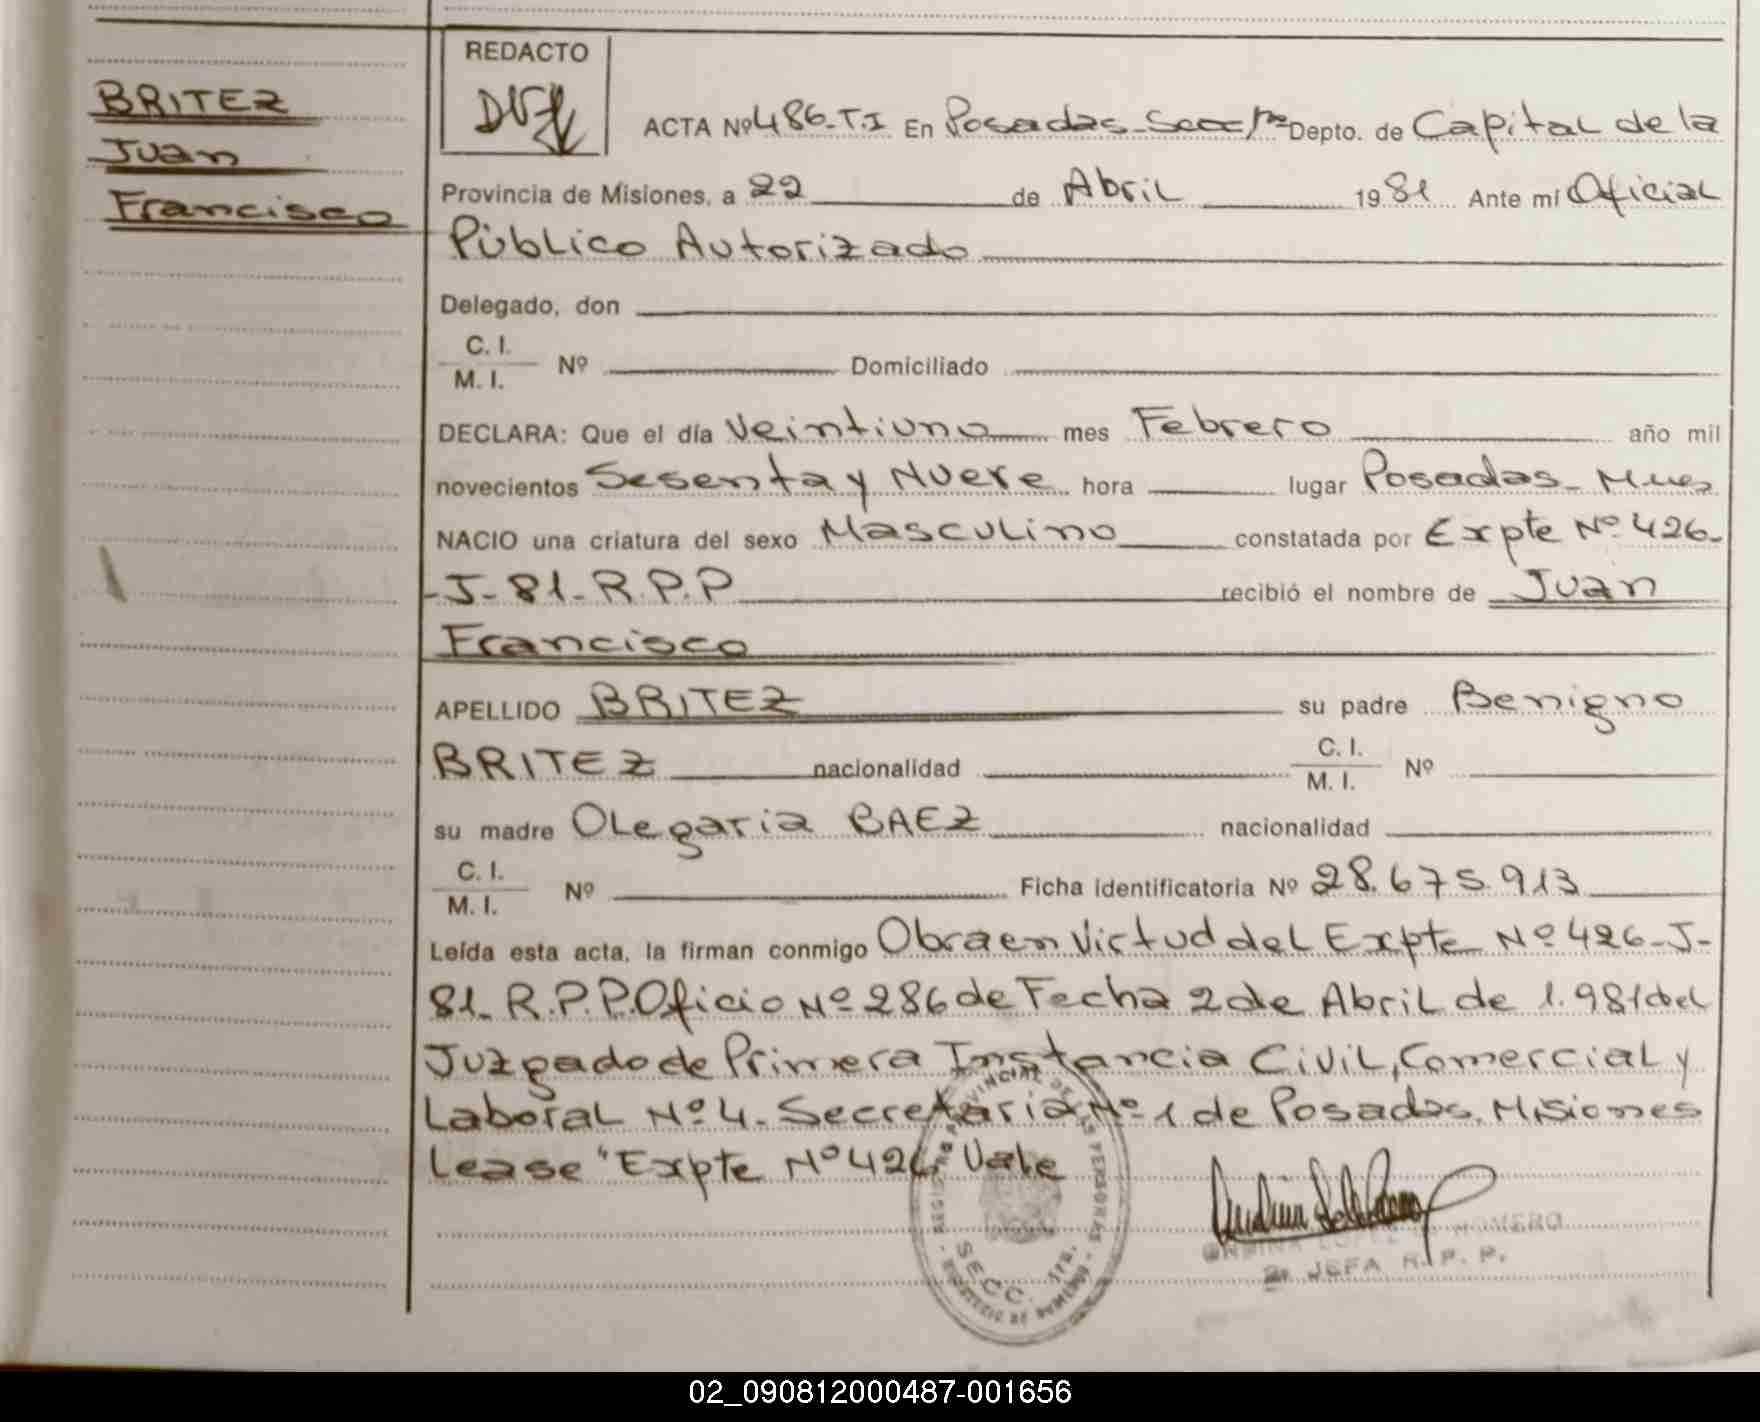 BRITEZ
Juan
Francisco
REDACTO
ACTA Nº 486-T.I En Posadas-Secc 1ra Depto. de Capital de la
Provincia de Misiones, a 22 de Abril 1981 Ante mí Oficial
Público Autorizado
Delegado, don
C. I.
M. I. Nº Domiciliado
DECLARA: Que el día Veintiuno mes Febrero año mil
novecientos Sesenta y Nueve hora lugar Posadas-Mnes
NACIO una criatura del sexo Masculino constatada por Expte Nº 426-
-J-81-R.P.P recibió el nombre de Juan
Francisco
APELLIDO BRITEZ su padre Benigno
BRITEZ nacionalidad C. I.
M. I. Nº
su madre Olegaria BAEZ nacionalidad
C. I.
M. I. Nº Ficha identificatoria Nº 28.675.913
Leída esta acta, la firman conmigo Obra en Virtud del Expte Nº 426-J-
81-R.P.P. Oficio Nº 286 de Fecha 2 de Abril de 1.981 del
Juzgado de Primera Instancia Civil, Comercial y
Laboral Nº 4-Secretaria Nº 1 de Posadas, Misiones
Lease "Expte Nº 426 Vale
REGISTRO PROVINCIAL DE LAS PERSONAS
SECC. 1ra.
LOPEZ ROMERO
JEFA R. P. P.
02_090812000487-001656